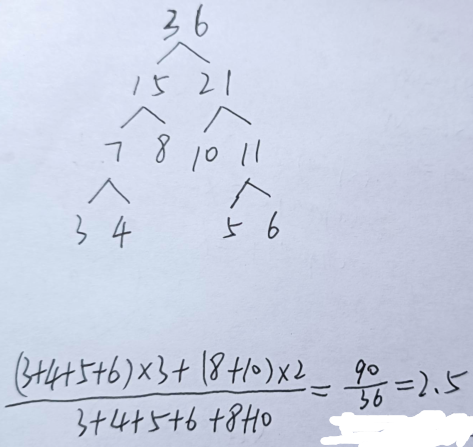 36
15 21
7 8 10 11
3 4 5 6
(3+4+5+6)×3+(8+10)×2
3+4+5+6+8+10
= 90/36 = 2.5